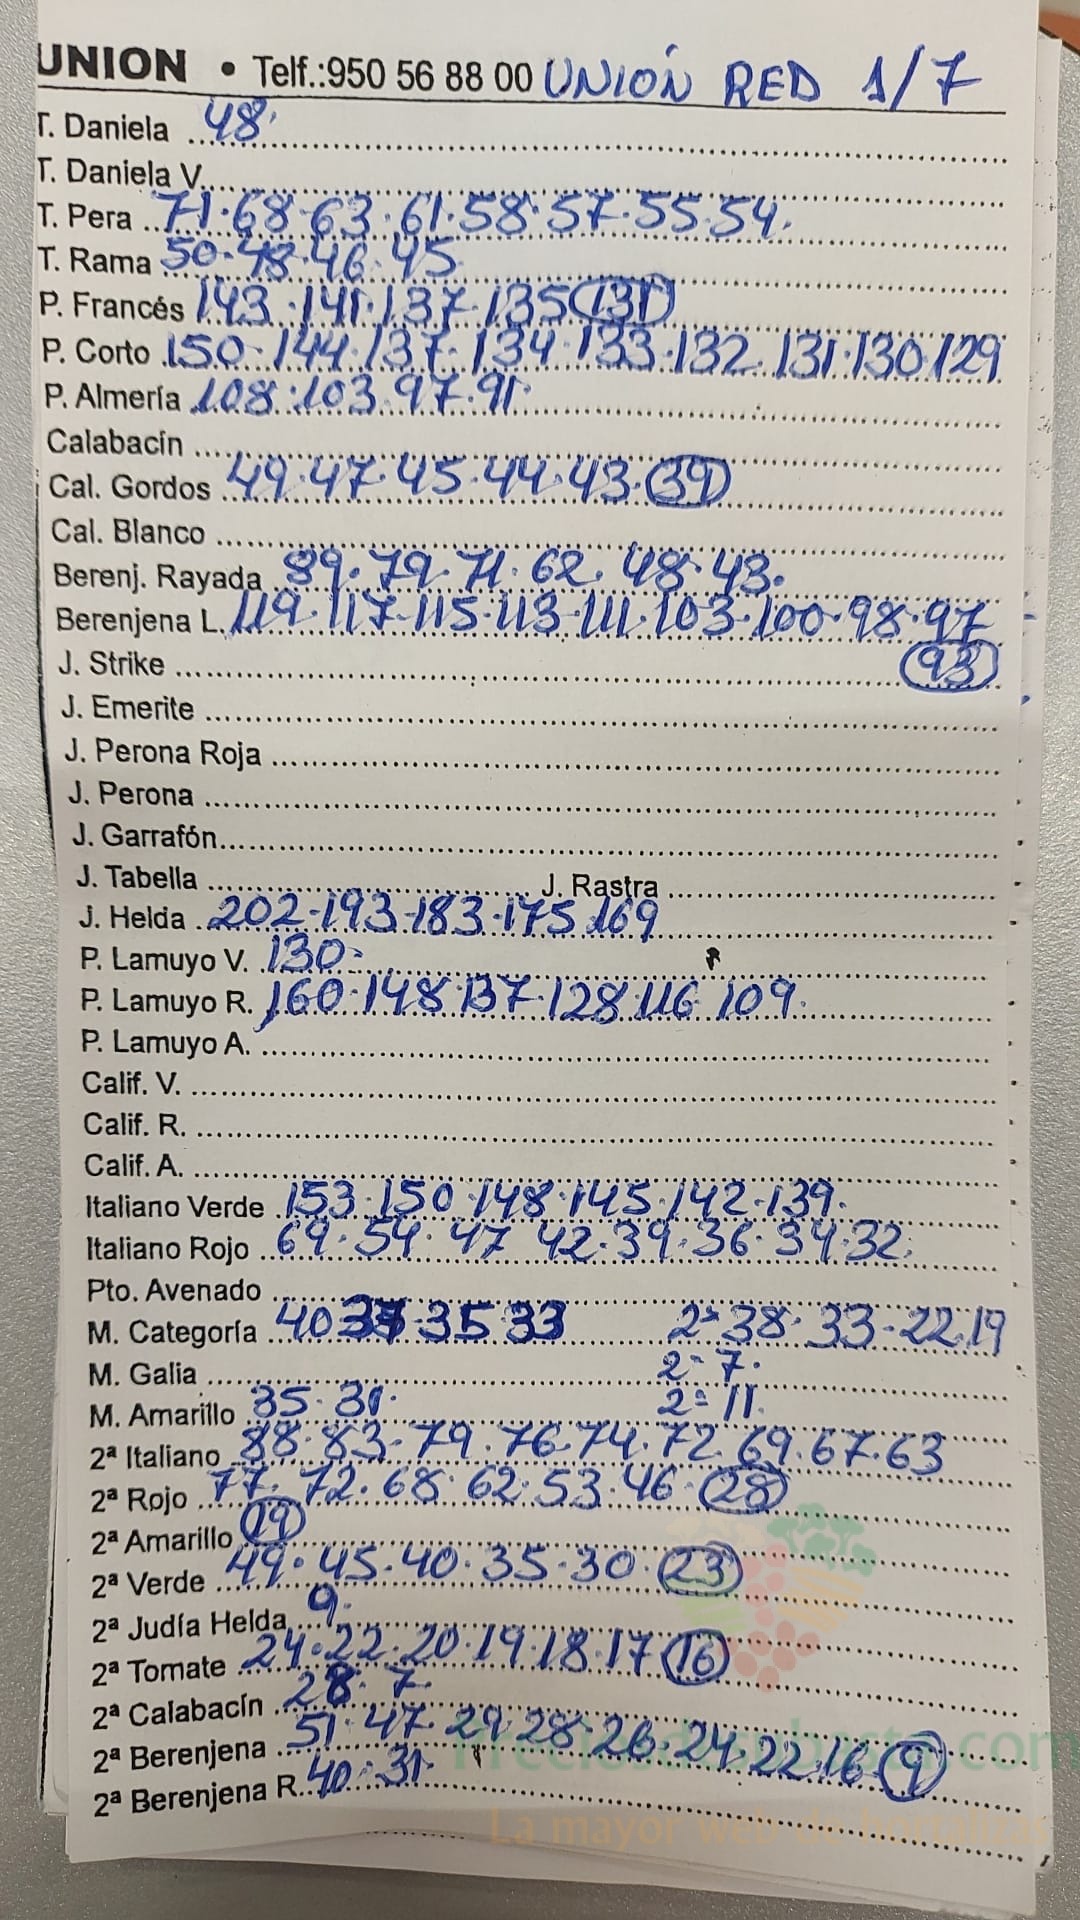 UNION • Telf.:950 56 88 00 UNIÓN RED 1/7
T. Daniela 48.
T. Daniela V.
T. Pera 71·68·63·61·58·57·55·54.
T. Rama 50·48·46·45
P. Francés 143·141·137·135 131
P. Corto 150·144·137·134·133·132·131·130·129
P. Almería 108·103·97·91·
Calabacín
Cal. Gordos 49·47·45·44·43·39
Cal. Blanco
Berenj. Rayada 89·79·71·62·48·43·
Berenjena L. 119·117·115·113·111·103·100·98·97
J. Strike 93
J. Emerite
J. Perona Roja
J. Perona
J. Garrafón
J. Tabella J. Rastra
J. Helda 202·193·183·175·169
P. Lamuyo V. 130·
P. Lamuyo R. 160·148·137·128·116·109·
P. Lamuyo A.
Calif. V.
Calif. R.
Calif. A.
Italiano Verde 153·150·148·145·142·139·
Italiano Rojo 69·54·47·42·39·36·34·32.
Pto. Avenado
M. Categoría 40 35 33 2ª 38·33·22·19
M. Galia 2ª 7·
M. Amarillo 35·31· 2ª 11.
2ª Italiano 88·83·79·76·74·72·69·67·63
2ª Rojo 77·72·68·62·53·46·28
2ª Amarillo 19
2ª Verde 49·45·40·35·30·23
2ª Judía Helda 9·
2ª Tomate 24·22·20·19·18·17 16
2ª Calabacín 28·7·
2ª Berenjena 51·47·29·28·26·24·22·16 9
2ª Berenjena R. 40·31·
Preciosdesubasta.com
La mayor web de hortalizas